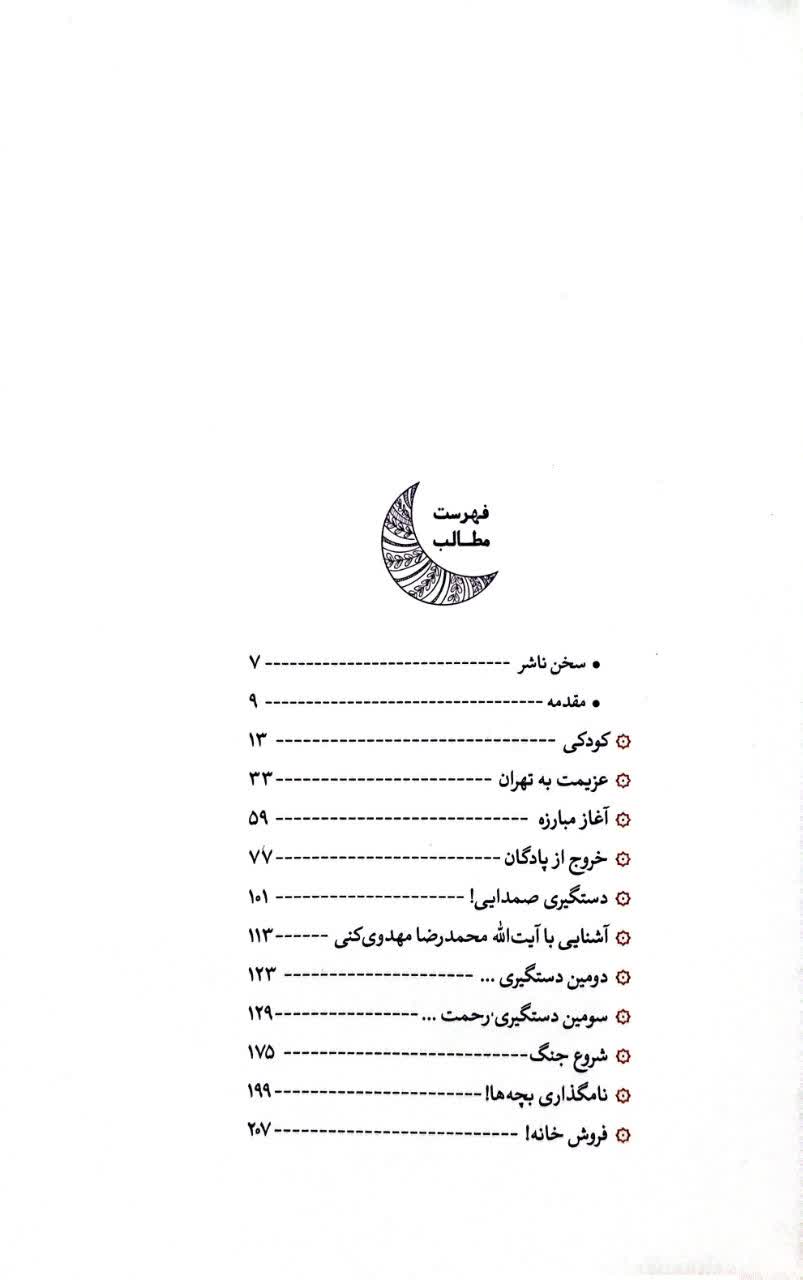 فهرست
مطالب
• سخن ناشر ------------------------------ ۷
• مقدمه ---------------------------------- ۹
کودکی ------------------------------- ۱۳
عزیمت به تهران ------------------------ ۳۳
آغاز مبارزه ---------------------------- ۵۹
خروج از پادگان ------------------------- ۷۷
دستگیری صمدایی! --------------------- ۱۰۱
آشنایی با آیت‌الله محمدرضا مهدوی‌کنی ------ ۱۱۳
دومین دستگیری ... --------------------- ۱۲۳
سومین دستگیری رحمت ... ---------------- ۱۲۹
شروع جنگ --------------------------- ۱۷۵
نامگذاری بچه‌ها! ----------------------- ۱۹۹
فروش خانه! --------------------------- ۲۰۷